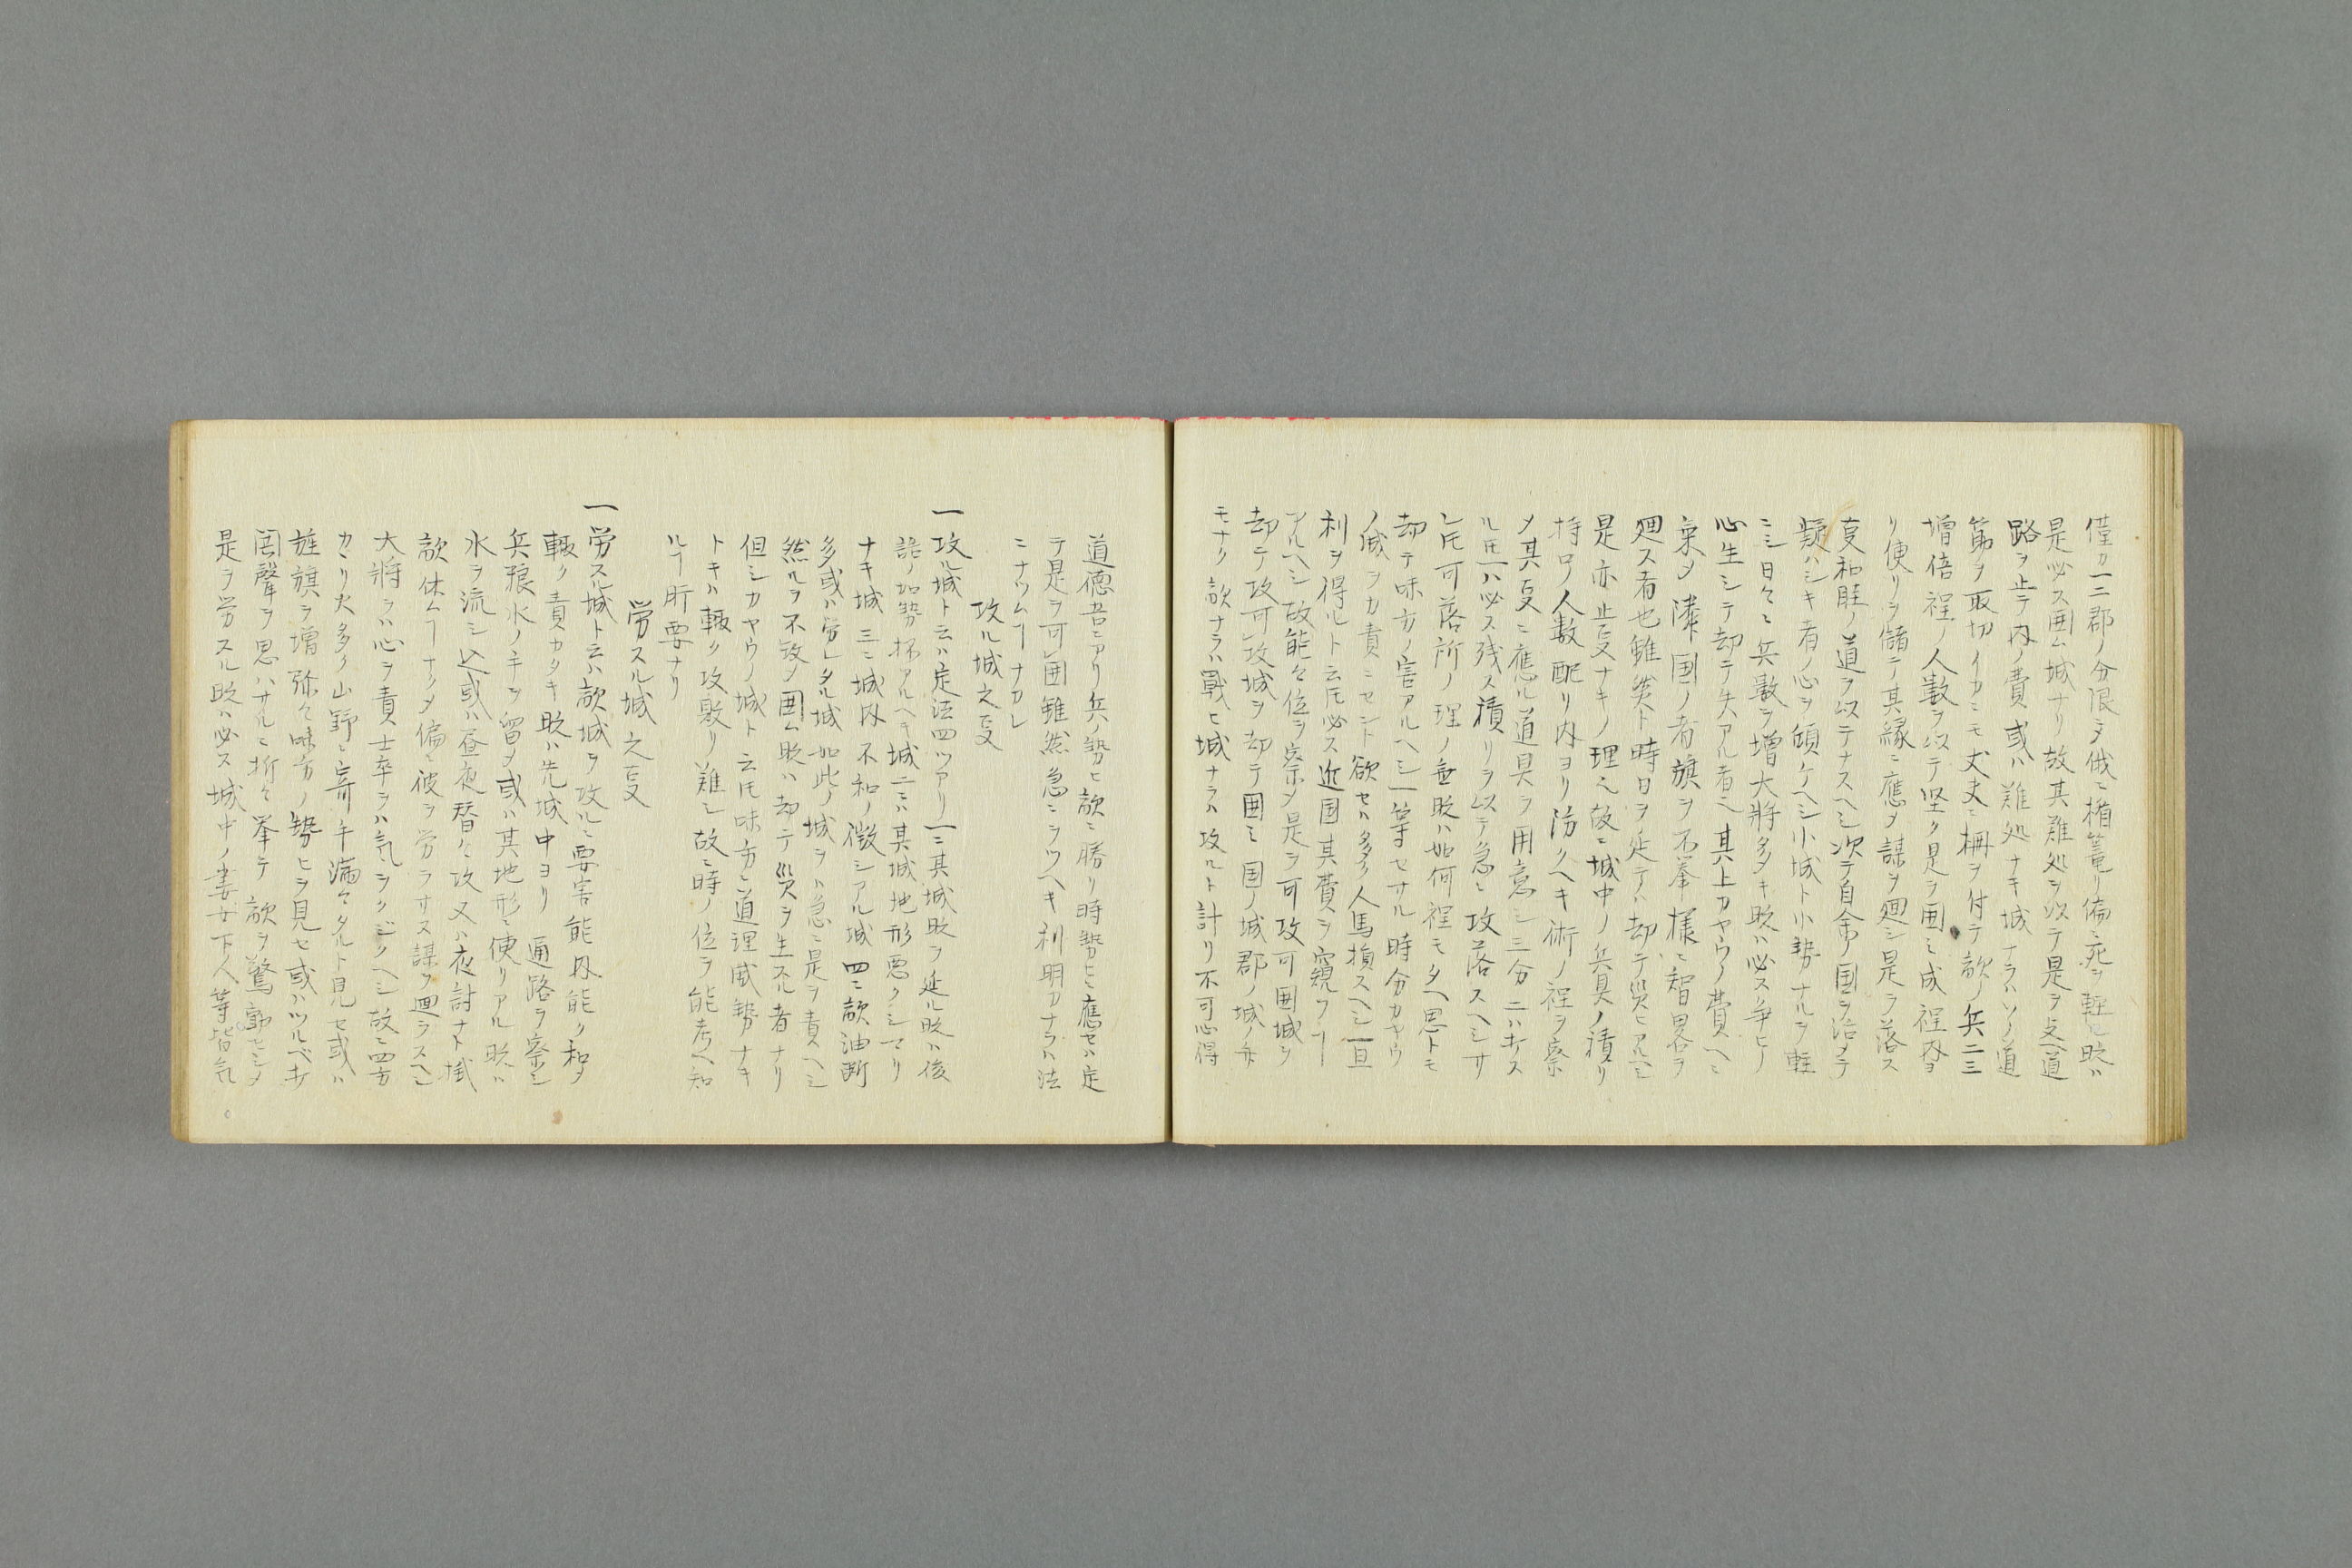 僅カ一二郡ノ分限ヲ俄ニ楯篭リ偏ニ死ヲ軽ル時ハ
是必ス囲ム城ナリ故其難処ヲ以テ是ヲ支道
路ヲ止テ内ノ費或ハ難処ナキ城ナラハソノ道
節ヲ取切イカニモ丈夫ニ柵ヲ付テ敵ノ兵二三
増倍程ノ人数ヲ以テ堅ク是ヲ囲ミ成程内ヨ
リ便リヲ儲テ其縁ニ應シ謀ヲ廻シ是ヲ落ス
㕝和睦ノ道ヲ以テナスヘシ次テ自余ノ国ヲ治メテ
疑ハシキ者ノ心ヲ傾ケヘシ小城ト小勢ナルヲ軽
ニシ日々ニ兵数ヲ増大將多キ時ハ必ス争ヒノ
心生シテ却テ失アル者也其上カヤウノ費ヘニ
乗メ隣国ノ者旗ヲ不挙様ニ智畧ヲ
廻ス者也雖然ト時日ヲ延テハ却テ災ヒアルヘシ
是亦止㕝ナキノ理也故ニ城中ノ兵具ノ積リ
持口ノ人数配リ内ヨリ防クヘキ術ノ程ヲ察
メ其㕝ニ應ル道具ヲ用意シ三分二ハホス
ルヿハ必ス残ス積リヲ以テ急ニ攻落スヘシサ
レ𪜈可落所ノ理ノ無時ハ如何程モタヘ思トモ
却テ味方ノ害アルヘシ一等セサル時分カヤウ
ノ滅ヲカ責ニセント欲セハ多ク人馬損スヘシ一旦
利ヲ得ルト云𪜈必ス近国其費ヲ窺フヿ
アルヘシ故能々位ヲ察メ是ヲ可攻可囲城ヲ
却テ攻可攻城ヲ却テ囲ミ国ノ城郡ノ城ノ弁
モナク敵ナラハ戰ヒ城ナラハ攻ルト計リ不可心得
道徳吾ニアリ兵ノ勢ヒ敵ニ勝リ時勢ヒニ應セハ定
テ是ヲ可囲雖然急ニヲソヘキ利明カナラハ法
ニナツムヿナカレ
攻ル城之㕝
一攻ル城ト云ハ定法四ツアリ一ニ其城時ヲ延ル時ハ後
詰ノ加勢抔アルヘキ城二ニハ其城地形悪クシマリ
ナキ城三ニ城内不和ノ徴シアル城四ニ敵油断
多或ハ労シタル城如此ノ城ヲハ急ニ是ヲ責ヘシ
然ルヲ不攻メ囲ム時ハ却テ災ヲ生スル者ナリ
但シカヤウノ城ト云𪜈味方ニ道理威勢ナキ
トキハ輙ク攻敗リ難シ故ニ時ノ位ヲ能考ヘ知
ルヿ肝要ナリ
労スル城之㕝
一労スル城ト云ハ敵城ヲ攻ルニ要害能内能ク和メ
輙ク責カタキ時ハ先城中ヨリノ通路ヲ察シ
兵粮水ノ手ヲ留メ或ハ其地形ニ便リアル時ハ
水ヲ流シ込或ハ昼夜替々攻又ハ夜討ナト掛
敵休ムヿナメ偏ニ彼ヲ労ラサス謀ヲ廻ラスヘシ
大將ヲハ心ヲ責士卒ヲハ気ヲクジクヘシ故ニ四方
カヽリ火多ク山野ニ寄手満々タルト見セ或ハ
旌旗ヲ増弥々味方ノ勢ヒヲ見セ或ハツルベホ
閧聲ヲ思ハサルニ折々挙テ敵ヲ驚動セシメ
是ヲ労スル時ハ必ス城中ノ妻女下人等皆気